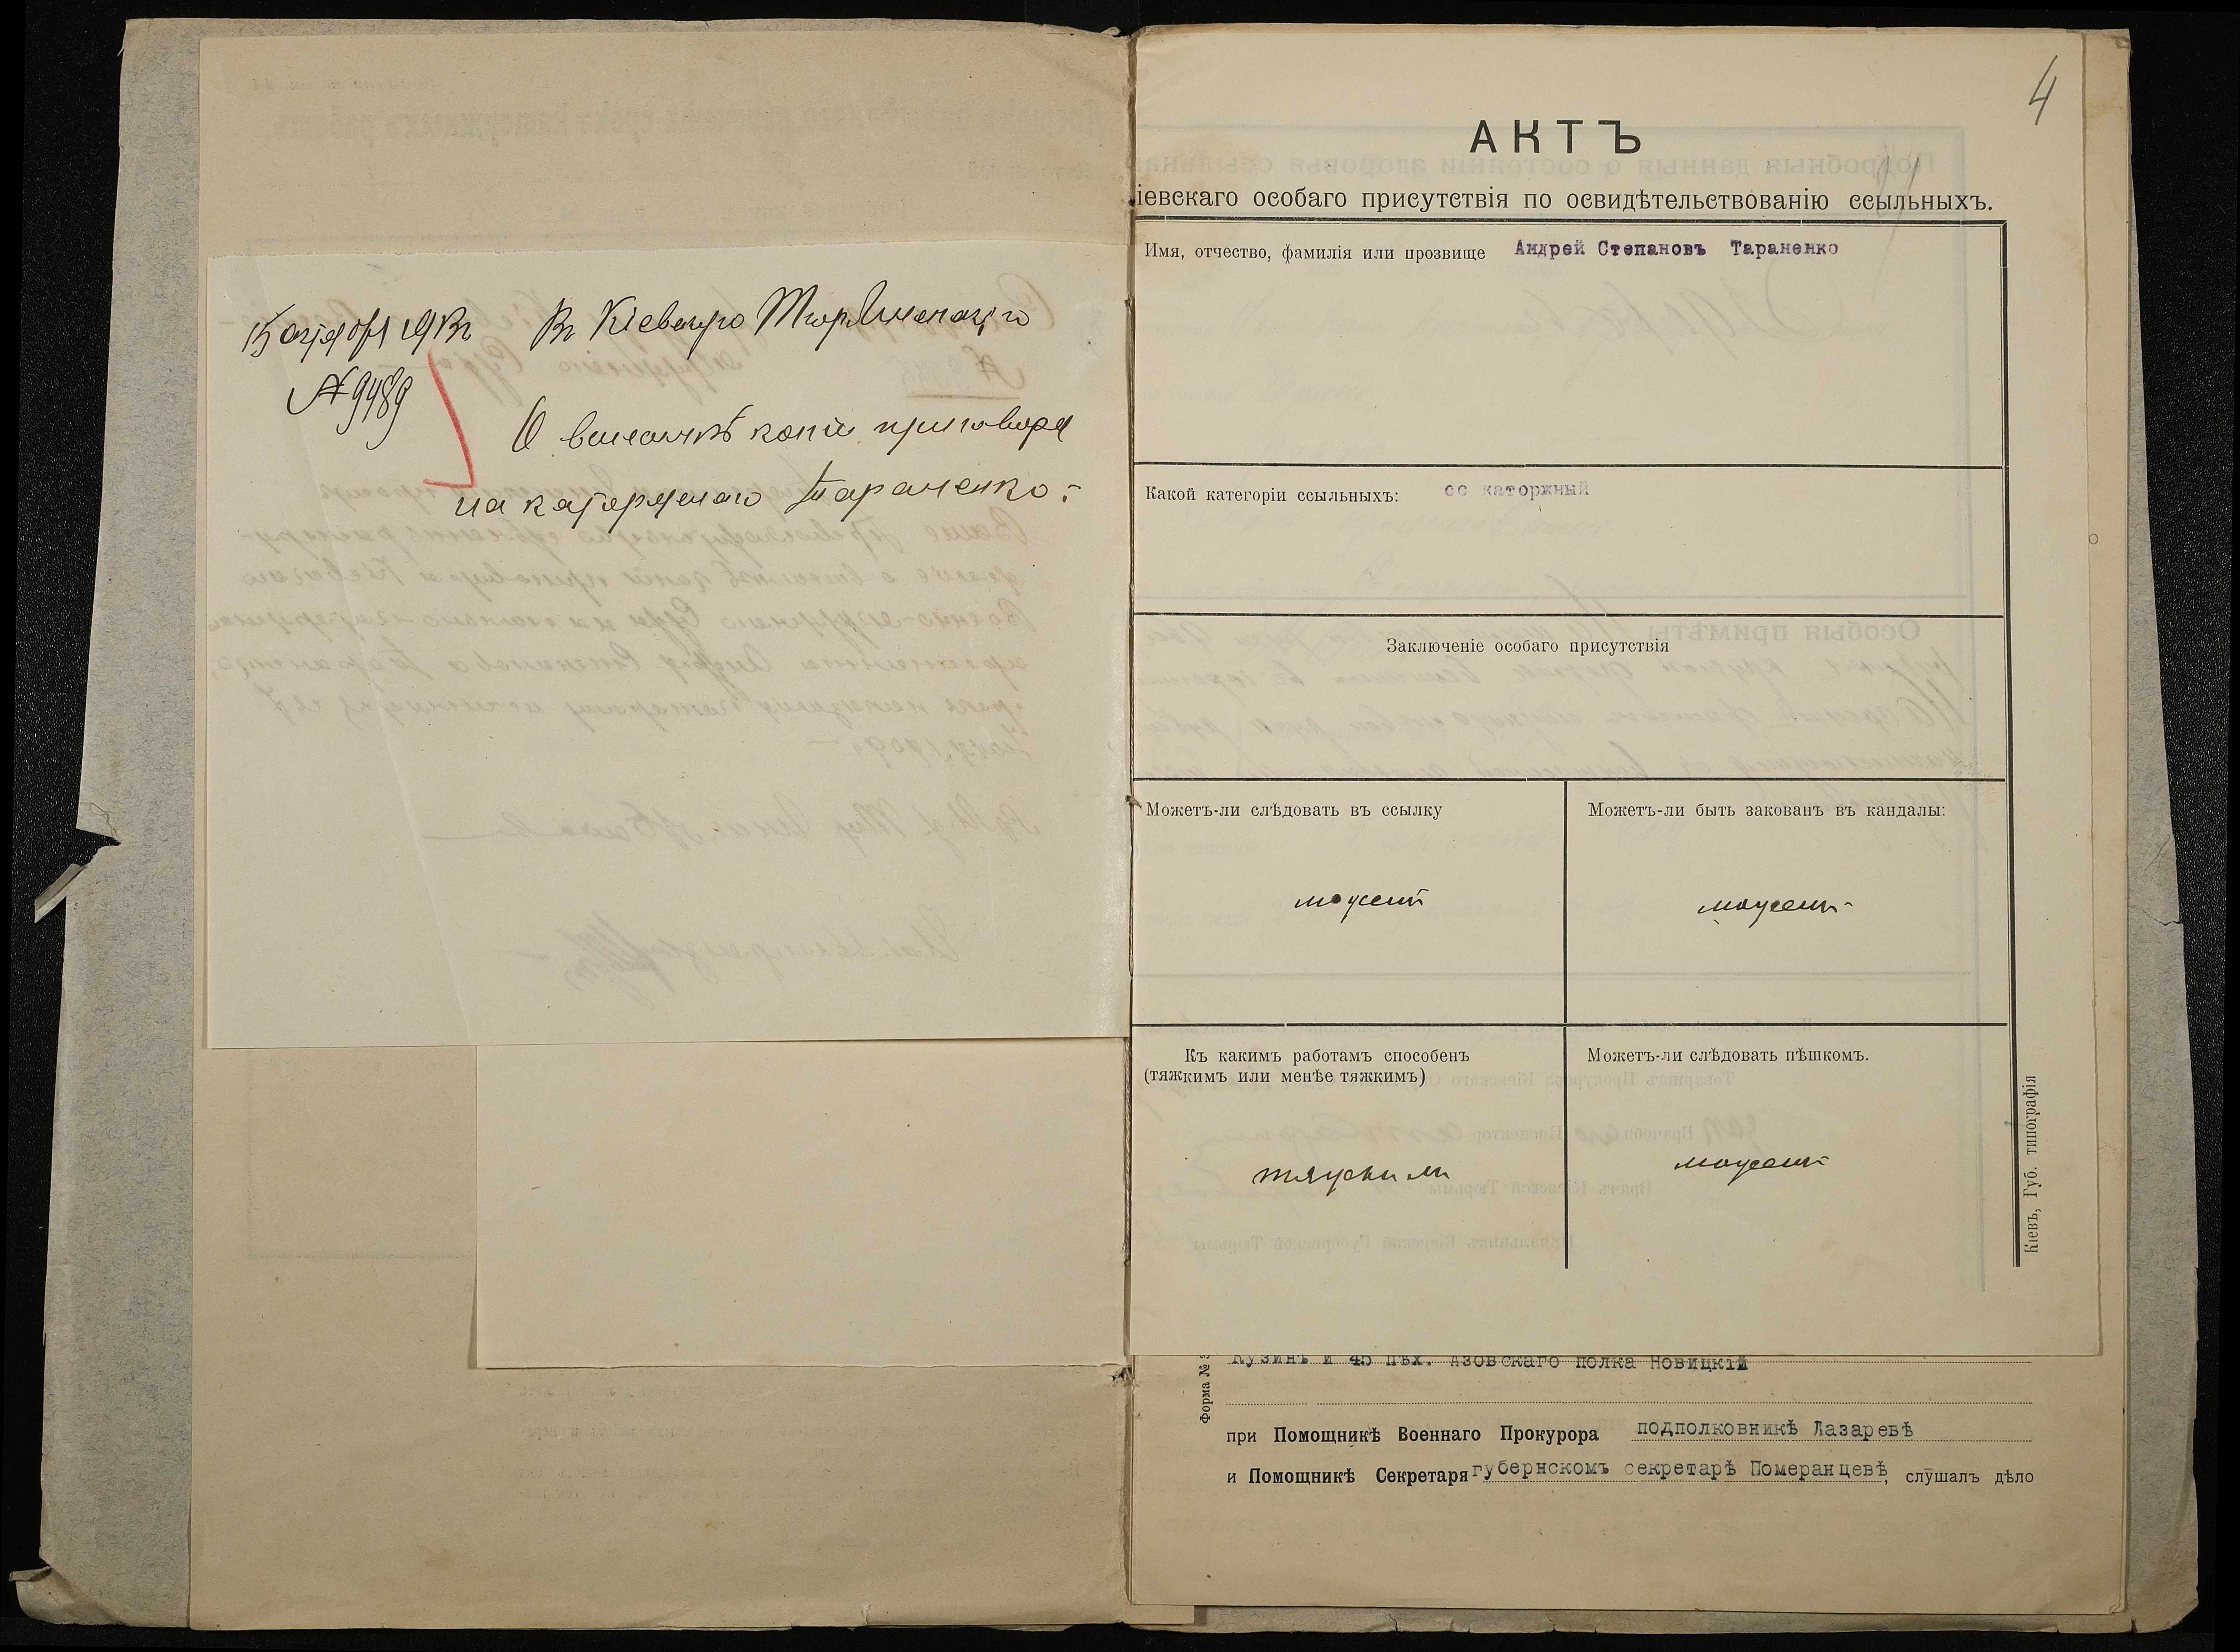 № 9489
О высылкѣ копіи приговора
на каторжнаго Тараненко.
4
АКТЪ
іевскаго особаго присутствія по освидѣтельствованію ссыльныхъ.
Имя, отчество, фамилія или прозвище Андрей Степановъ Тараненко
Какой категоріи ссыльныхъ: сс каторжный
Заключеніе особаго присутствія
Можетъ-ли слѣдовать въ ссылку
можетъ
Можетъ-ли быть закованъ въ кандалы:
можетъ
Къ какимъ работамъ способенъ
(тяжкимъ или менѣе тяжкимъ)
тяжкимъ
Можетъ-ли слѣдовать пѣшкомъ.
можетъ
Кіевъ, Губ. типографія
Форма №
Кузинъ и 45 пѣх. Азовскаго полка Новицкій
при Помощникѣ Военнаго Прокурора подполковникѣ Лазаревѣ
и Помощникѣ Секретаря губернскомъ секретарѣ Померанцевѣ, слушалъ дѣло